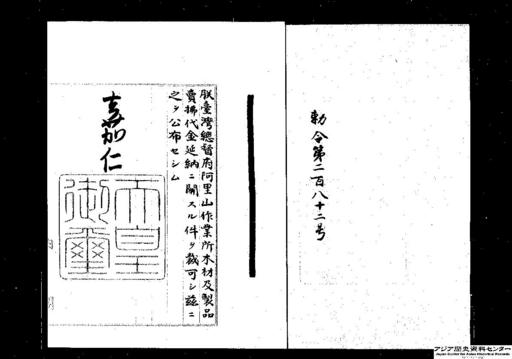 勅令第二百八十二号
朕臺灣總督府阿里山作業所木材及製品
賣拂代金延納ニ關スル件ヲ裁可シ茲ニ
之ヲ公布セシム
嘉仁
天皇
御璽
アジア歴史資料センター
Japan Center for Asian Historical Records